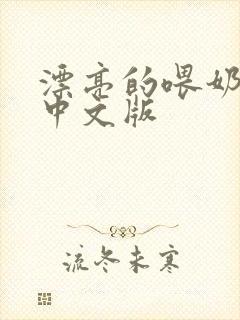 漂亮的喂奶
中文版
流冬未寒